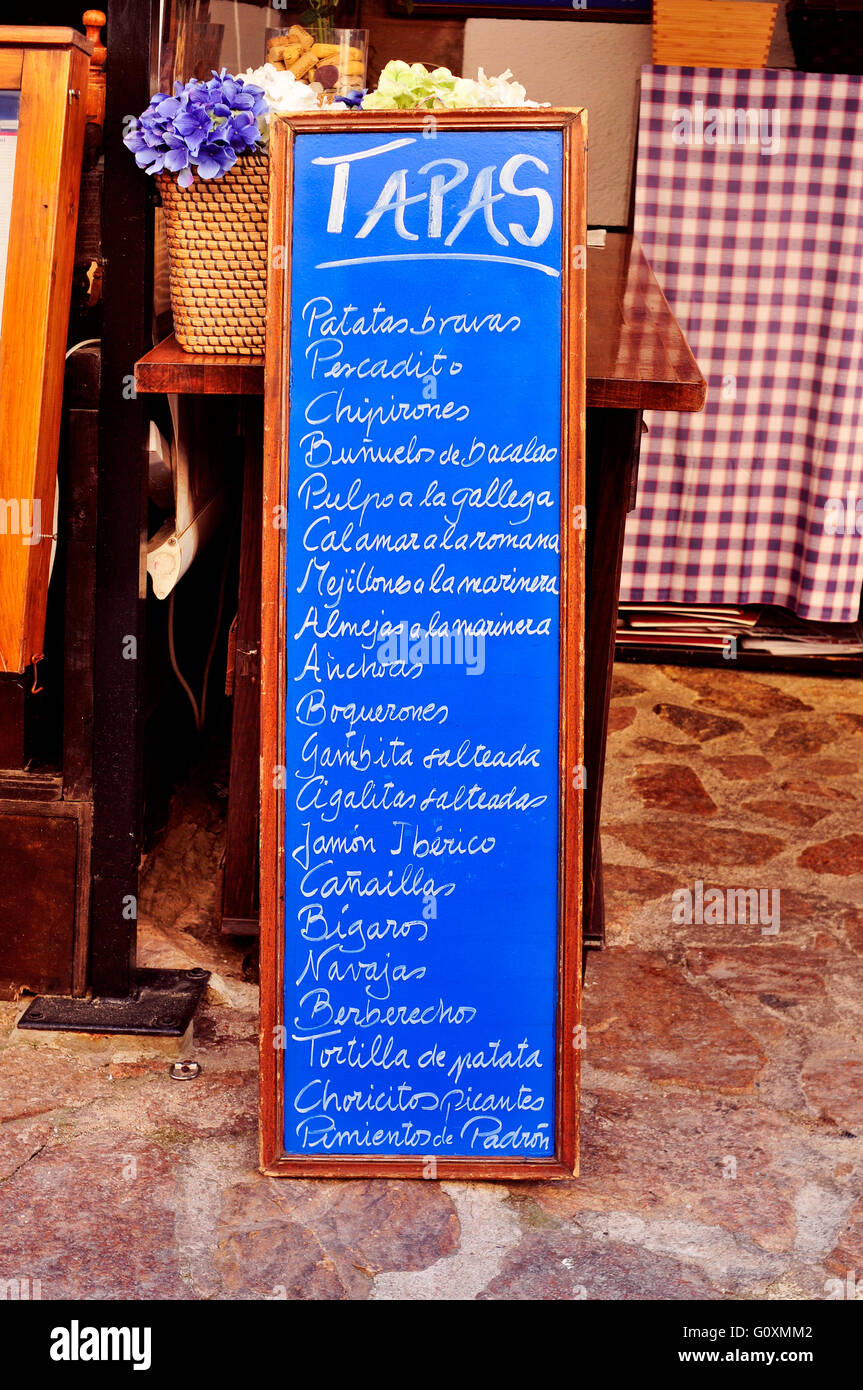 TAPAS
Patatas bravas
Pescadito
Chipirones
Buñuelos de bacalao
Pulpo a la gallega
Calamar a la romana
Mejillones a la marinera
Almejas a la marinera
Anchoas
Boquerones
Gambita salteada
Cigalitas salteadas
Jamón Ibérico
Cañaillas
Bígaros
Navajas
Berberechos
Tortilla de patata
Choricitos picantes
Pimientos de Padrón
alamy
Image ID: G0XMM2
www.alamy.com